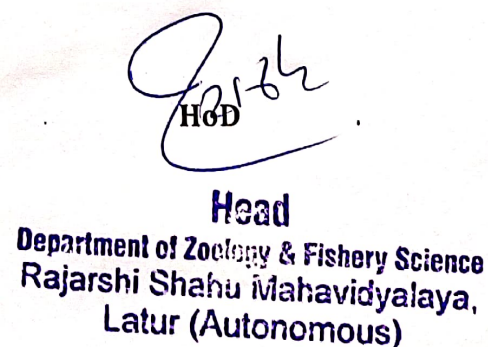 HoD
Head
Department of Zoology & Fishery Science
Rajarshi Shahu Mahavidyalaya,
Latur (Autonomous)